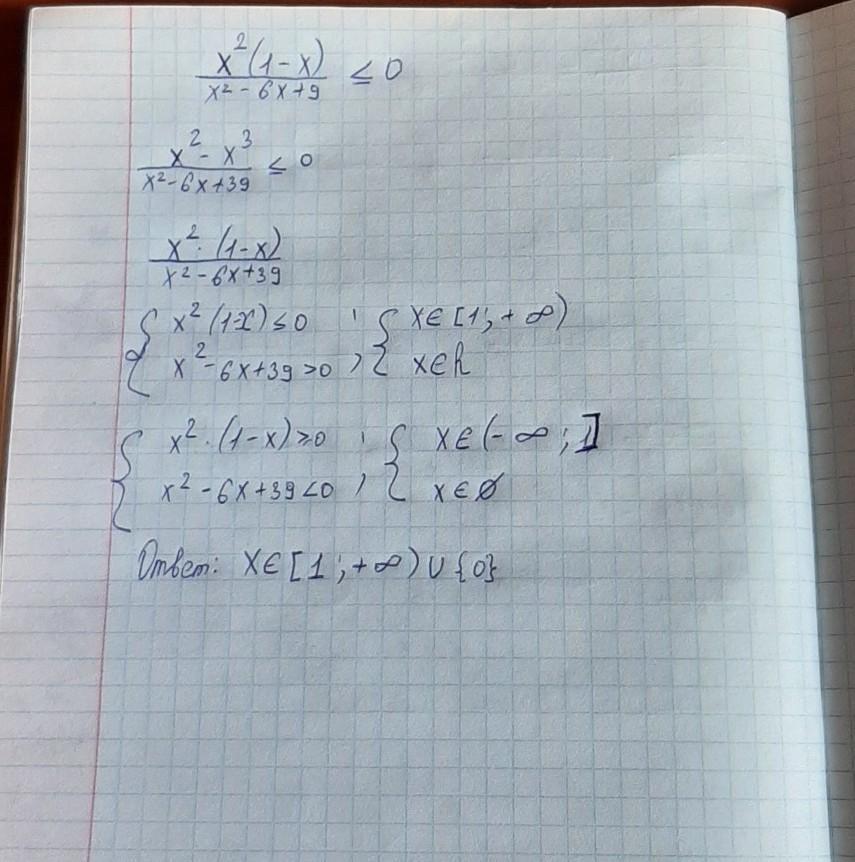 x²(1-x) / x² - 6x+9 ≤ 0
x² - x³ / x²-6x+39 ≤ 0
x² · (1-x) / x² - 6x+39
{ x² (1-x) ≤ 0 ; { x∈[1; +∞)
x² - 6x+39 >0 ; x∈R
{ x² · (1-x) ≥0 ; { x∈(-∞; 1]
x² - 6x+39 <0 ; x∈∅
Ответ: x∈[1; +∞)∪{0}